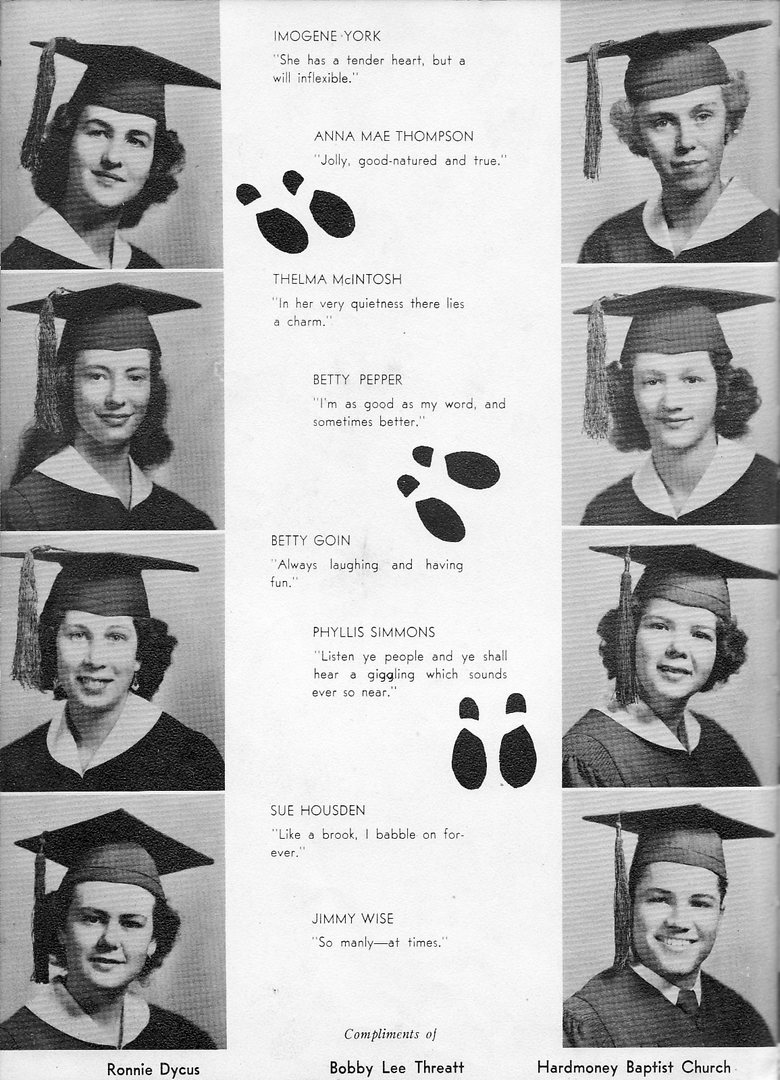 IMOGENE YORK
"She has a tender heart, but a
will inflexible."
ANNA MAE THOMPSON
"Jolly, good-natured and true."
THELMA McINTOSH
"In her very quietness there lies
a charm."
BETTY PEPPER
"I'm as good as my word, and
sometimes better."
BETTY GOIN
"Always laughing and having
fun."
PHYLLIS SIMMONS
"Listen ye people and ye shall
hear a giggling which sounds
ever so near."
SUE HOUSDEN
"Like a brook, I babble on for-
ever."
JIMMY WISE
"So manly—at times."
Compliments of
Ronnie Dycus Bobby Lee Threatt Hardmoney Baptist Church